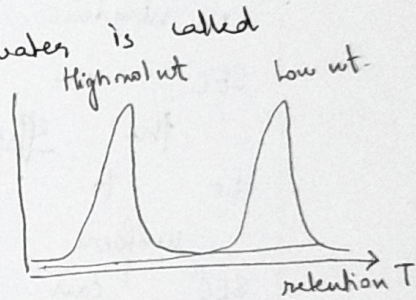 is called
High mol wt
Low wt.
retention T